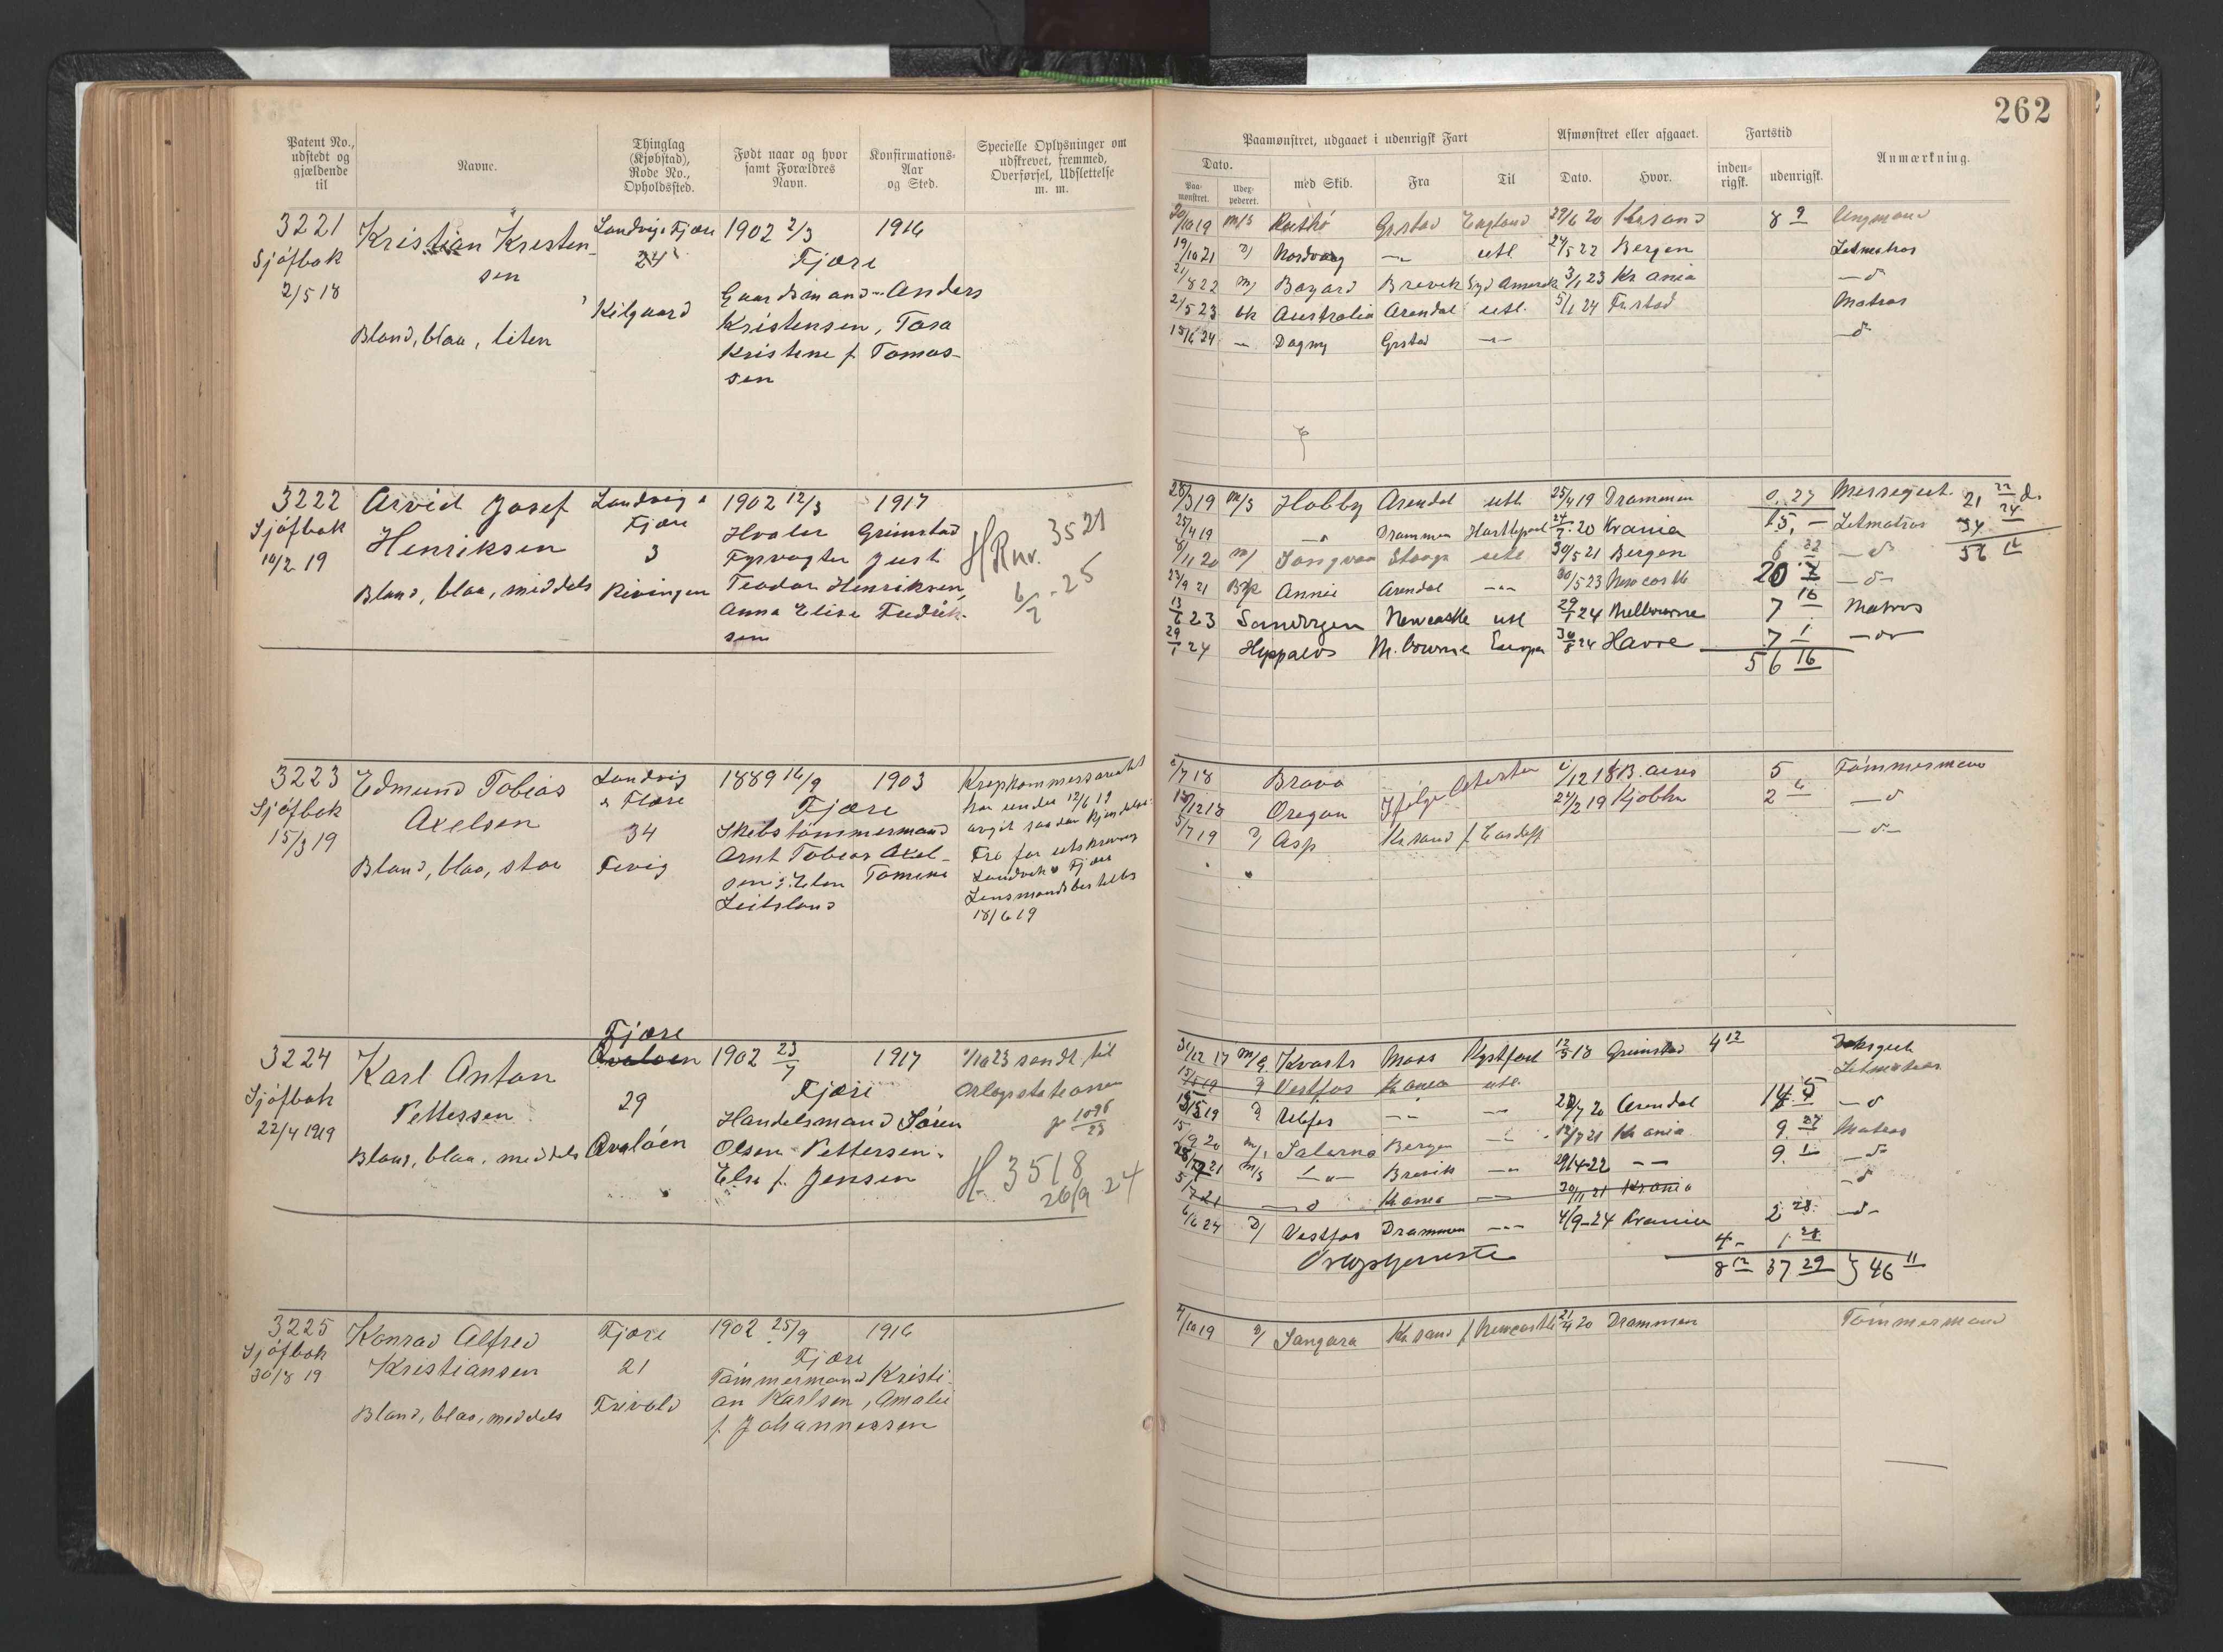 262
Patent No., udstedt og gjældende til
Navne.
Thinglag (Kjøbstad), Rode No., Opholdssted.
Født naar og hvor samt Forældres Navn.
Konfirmations-Aar og Sted.
Specielle Oplysninger om udskrevet, fremmed, Overførsel, Udslettelse m. m.
Paamønstret, udgaaet i udenrigsk Fart
Afmønstret eller afgaaet.
Fartstid
Anmærkning.
Dato.
Paa-mønstret.
Udex-pederet.
med Skib.
Fra
Til
Dato.
Hvor.
inden-rigsk.
udenrigsk.
3221
Sjøfbok
2/5 18
Kristian Kristen-
sen
Blond, blaa, liten
Landvig & Fjære
24
Kilgaard
1902 2/3 1916
Fjære
Gaardsmand Anders
Kristensen, Tara
Kristine f. Tomas-
sen
30/10 19 m/s Grstad England 29/6 20 Krsand 8 9 Ungmand
19/10 21 D/ Nordvaag —"— utl 24/5 22 Bergen Letmatros
21/8 22 m/ Bayard Brevik Syd Amerika 3/1 23 Kr ania —d
2/5 23 bk Australia Arendal utl. 5/1 24 Frstad Matros
15/6 24 —"— Dagny Grstad —"— —d
3222
Sjøfbok
14/2 19
Arvid Josef
Henriksen
Blond, blaa, middels
Landvig &
Fjære
3
Rivingen
1902 12/3 1917
Hvaler Grimstad
Fyrvogter Just
Teodor Henriksen,
Anna Elise Fredrik-
sen
HRnr. 3521
6/2 - 25
28/3 19 m/s Hobby Arendal utl 25/4 19 Drammen 0. 27 Messegut. 21 22 d.
25/4 19 —"— Drammen Hartlepool 24/7 20 Krania 15, — Letmatros 34 24
9/11 20 m/ utl 30/5 21 Bergen 6 22 —d 56 16
23/9 21 Bk Annie Arendal —"— 30/5 23 Newcastle 20 7 —d—
13/6 23 Newcastle utl 29/1 24 Melbourne 7 16 Matros
29/1 24 Hyppalos M. bourne Europa 30/8 24 Havre 7 1 —d—
56 16
3223
Sjøfbok
15/3 19
Edmund Tobias
Axelsen
Blond, blaa, stor
Landvig
& Fjære
34
Fevig
1889 16/9 1903
Fjære
Skibstømmermand
Arnt Tobias Axel-
sen & Elen Tomine
Leitsland
Krepkommersariatet
har under 12/6 19
avgit saadan kjendelse:
Fri for utskrivning
Landvik & Fjære
Lensmandsbestilles
18/6 19
2/7 18 Bravo Ifølge Attester 6/12 18 B. aires 5 Tømmermand
18/12 18 Oregon 24/2 19 Kjøbhn 2 6 —d
5/7 19 D/ Asp Krsand f. Cardiff —d—
3224
Sjøfbok
22/4 1919
Karl Anton
Pettersen
Blond, blaa, middels
Fjære
Kvaløen
29
Kvaløen
1902 23/7 1917
Fjære
Handelsmand Søren
Olsen Pettersen.
Else f. Jensen
/10 23 sendt til
Orlogsstationen
j 1096/23
H. 3518
26/9 24
31/12 17 m/g. Kvasts Moss Kystfart 12/5 18 Grimstad 4 12 Dæksgut
15/5 19 D/ Vestfos Krania utl. Letmatros
15/5 19 D/ Ulefos —"— —"— 20/7 20 Arendal 14 5 —d
15/9 20 m/s Salerno Bergen —"— 12/7 21 Krania 9. 27 Matros
28/7 21 m/s —"— Brevik —"— 29/4-22 —"— 9. 1 —d—
5/7 21 —d Krania —"— 30/11 21 Krania —d
6/6 24 D/ Vestfos Drammen —"— 4/9-24 Krania 2 28 —d—
Orlogstjeneste 4— 1 28
8 12 37 29 } 46 11
3225
Sjøfbok
30/8 19
Konrad Alfred
Kristiansen
Blond, blaa, middels
Fjære
21
Frivold
1902 25/9 1916
Fjære
Tømmermand Kristi-
an Karlsen, Amalie
f. Johannessen
4/10 19 D/ Sangara Kr.sand f. Newcastle 21/4 20 Drammen Tømmermand